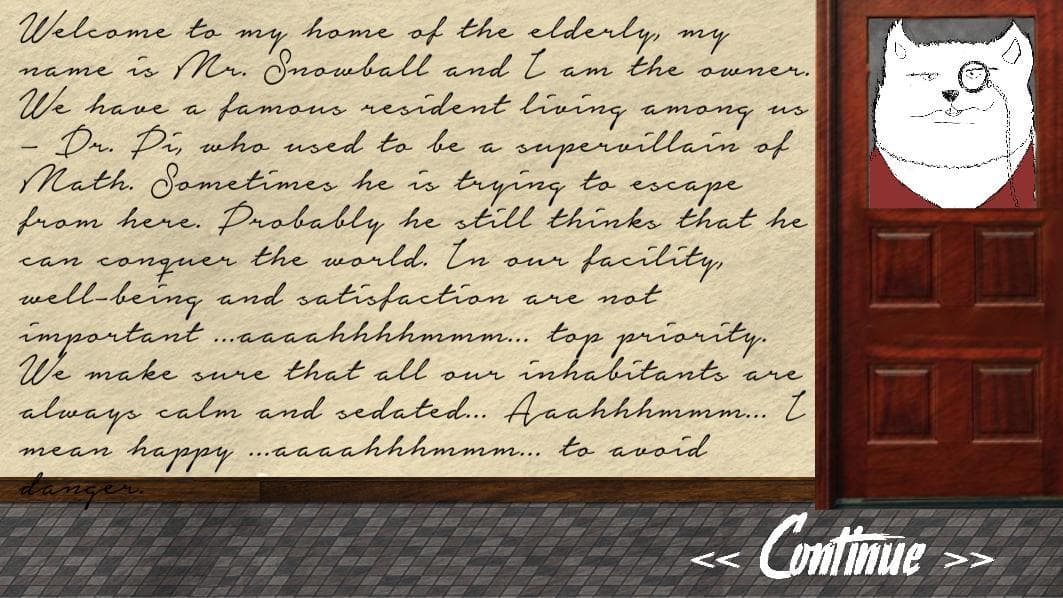 Welcome to my home of the elderly, my
name is Mr. Snowball and I am the owner.
We have a famous resident living among us
- Dr. Pi, who used to be a supervillain of
Math. Sometimes he is trying to escape
from here. Probably he still thinks that he
can conquer the world. In our facility,
well-being and satisfaction are not
important ...aaaahhhhmmm... top priority.
We make sure that all our inhabitants are
always calm and sedated... Aaahhhmmm... I
mean happy ...aaaahhhmmm... to avoid
danger.
<< Continue >>